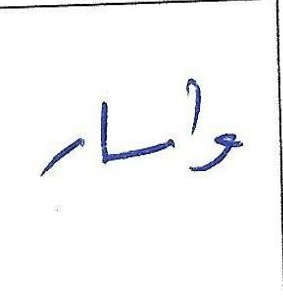 وأسار